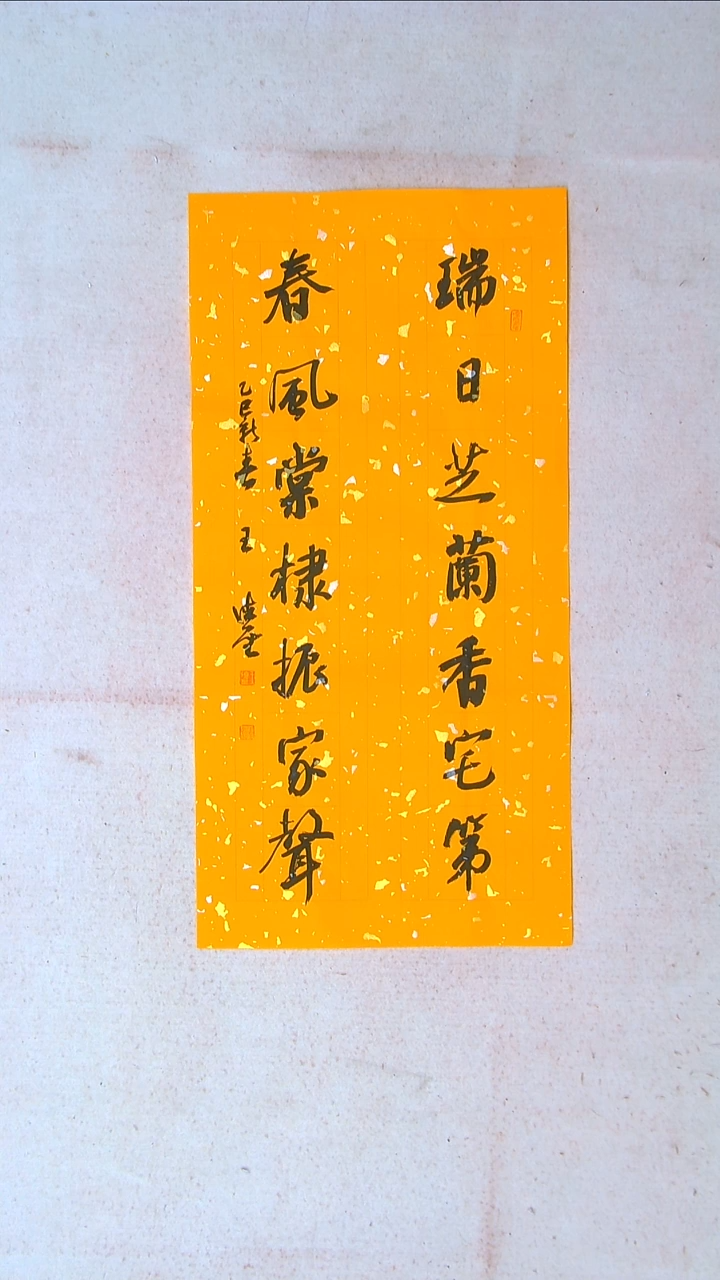 瑞日芝蘭香宅第
春風棠棣振家聲
乙巳新春 王